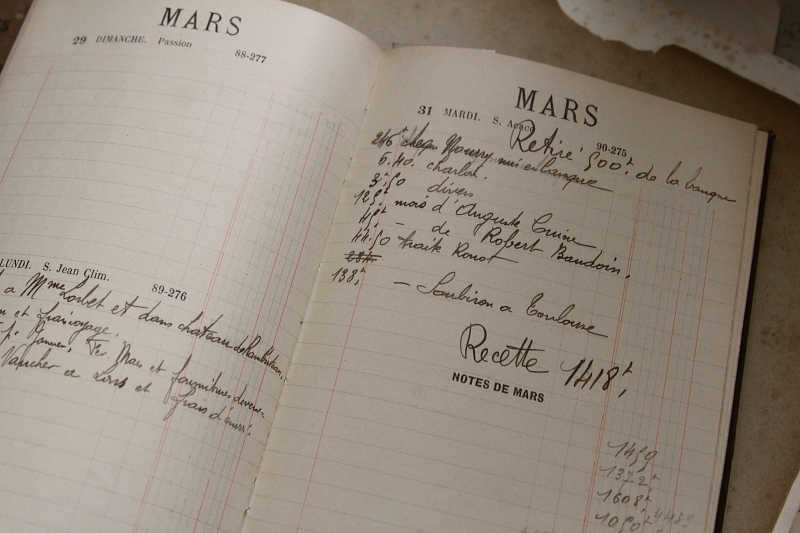 MARS
29 DIMANCHE. Passion 88-277
LUNDI. S. Jean Clim. 89-276
a Mme Lorbet et dans chateau de
et frais voyage.
Janvier, Fer, Mars et fournitures
Vaucher a et frais
MARS
31 MARDI. S. Acace 90-275
Retiré 500f de la banque
Mourry mis en banque
6.40. charbon.
3f50 divers
125f mois d'Auguste Cuine
45f — de Robert Baudoin.
44.50 traite Ronot
138f — Soubiron a Toulouse
Recette 1418f,
NOTES DE MARS
1459
1372f
1608f
1050f